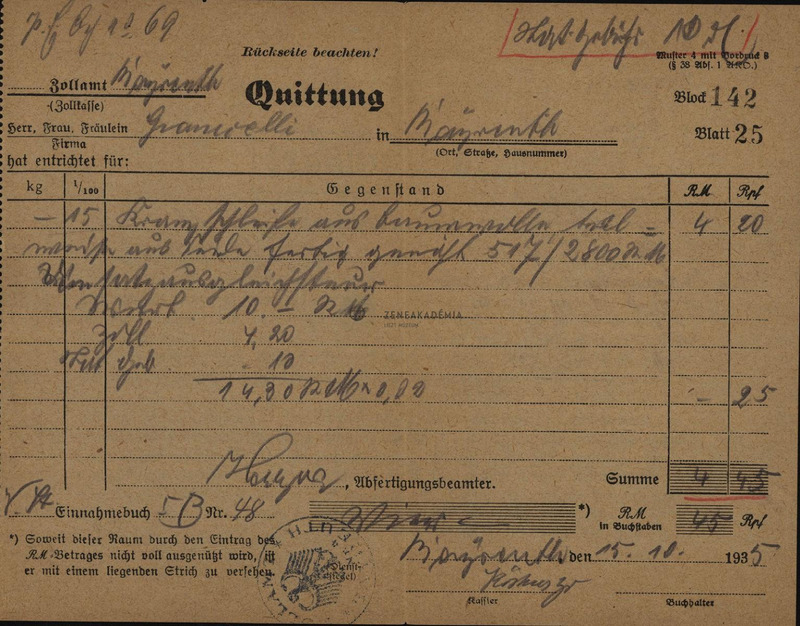 Stat. Gebühr 10 Pf.
Rückseite beachten!
Muster 4 mit Vordruck 8
(§ 38 Abs. 1 ARO.)
Zollamt Bayreuth
(Zollkasse)
Quittung
Block 142
Herr, Frau, Fräulein
Firma
in Bayreuth
Blatt 25
(Ort, Straße, Hausnummer)
hat entrichtet für:
kg 1/100 Gegenstand RM Rpf
— 15 Kranzschleife aus Baumwolle teil= 4 20
weise aus Seide fertig genäht 517/2800 RM
Umsatzausgleichsteuer
Wert 10.— RM
Zoll 4,20
Stat Geb 10
14,30 RM × 0,02 — 25
, Abfertigungsbeamter.
Summe 4 45
Einnahmebuch 5 B Nr. 48
Vier *) RM in Buchstaben 45 Rpf
*) Soweit dieser Raum durch den Eintrag des
RM-Betrages nicht voll ausgenützt wird, ist
er mit einem liegenden Strich zu versehen.
(Dienststempel)
Bayreuth den 15. 10. 1935
Kassier
Buchhalter
ZENEAKADÉMIA
LISZT MÚZEUM